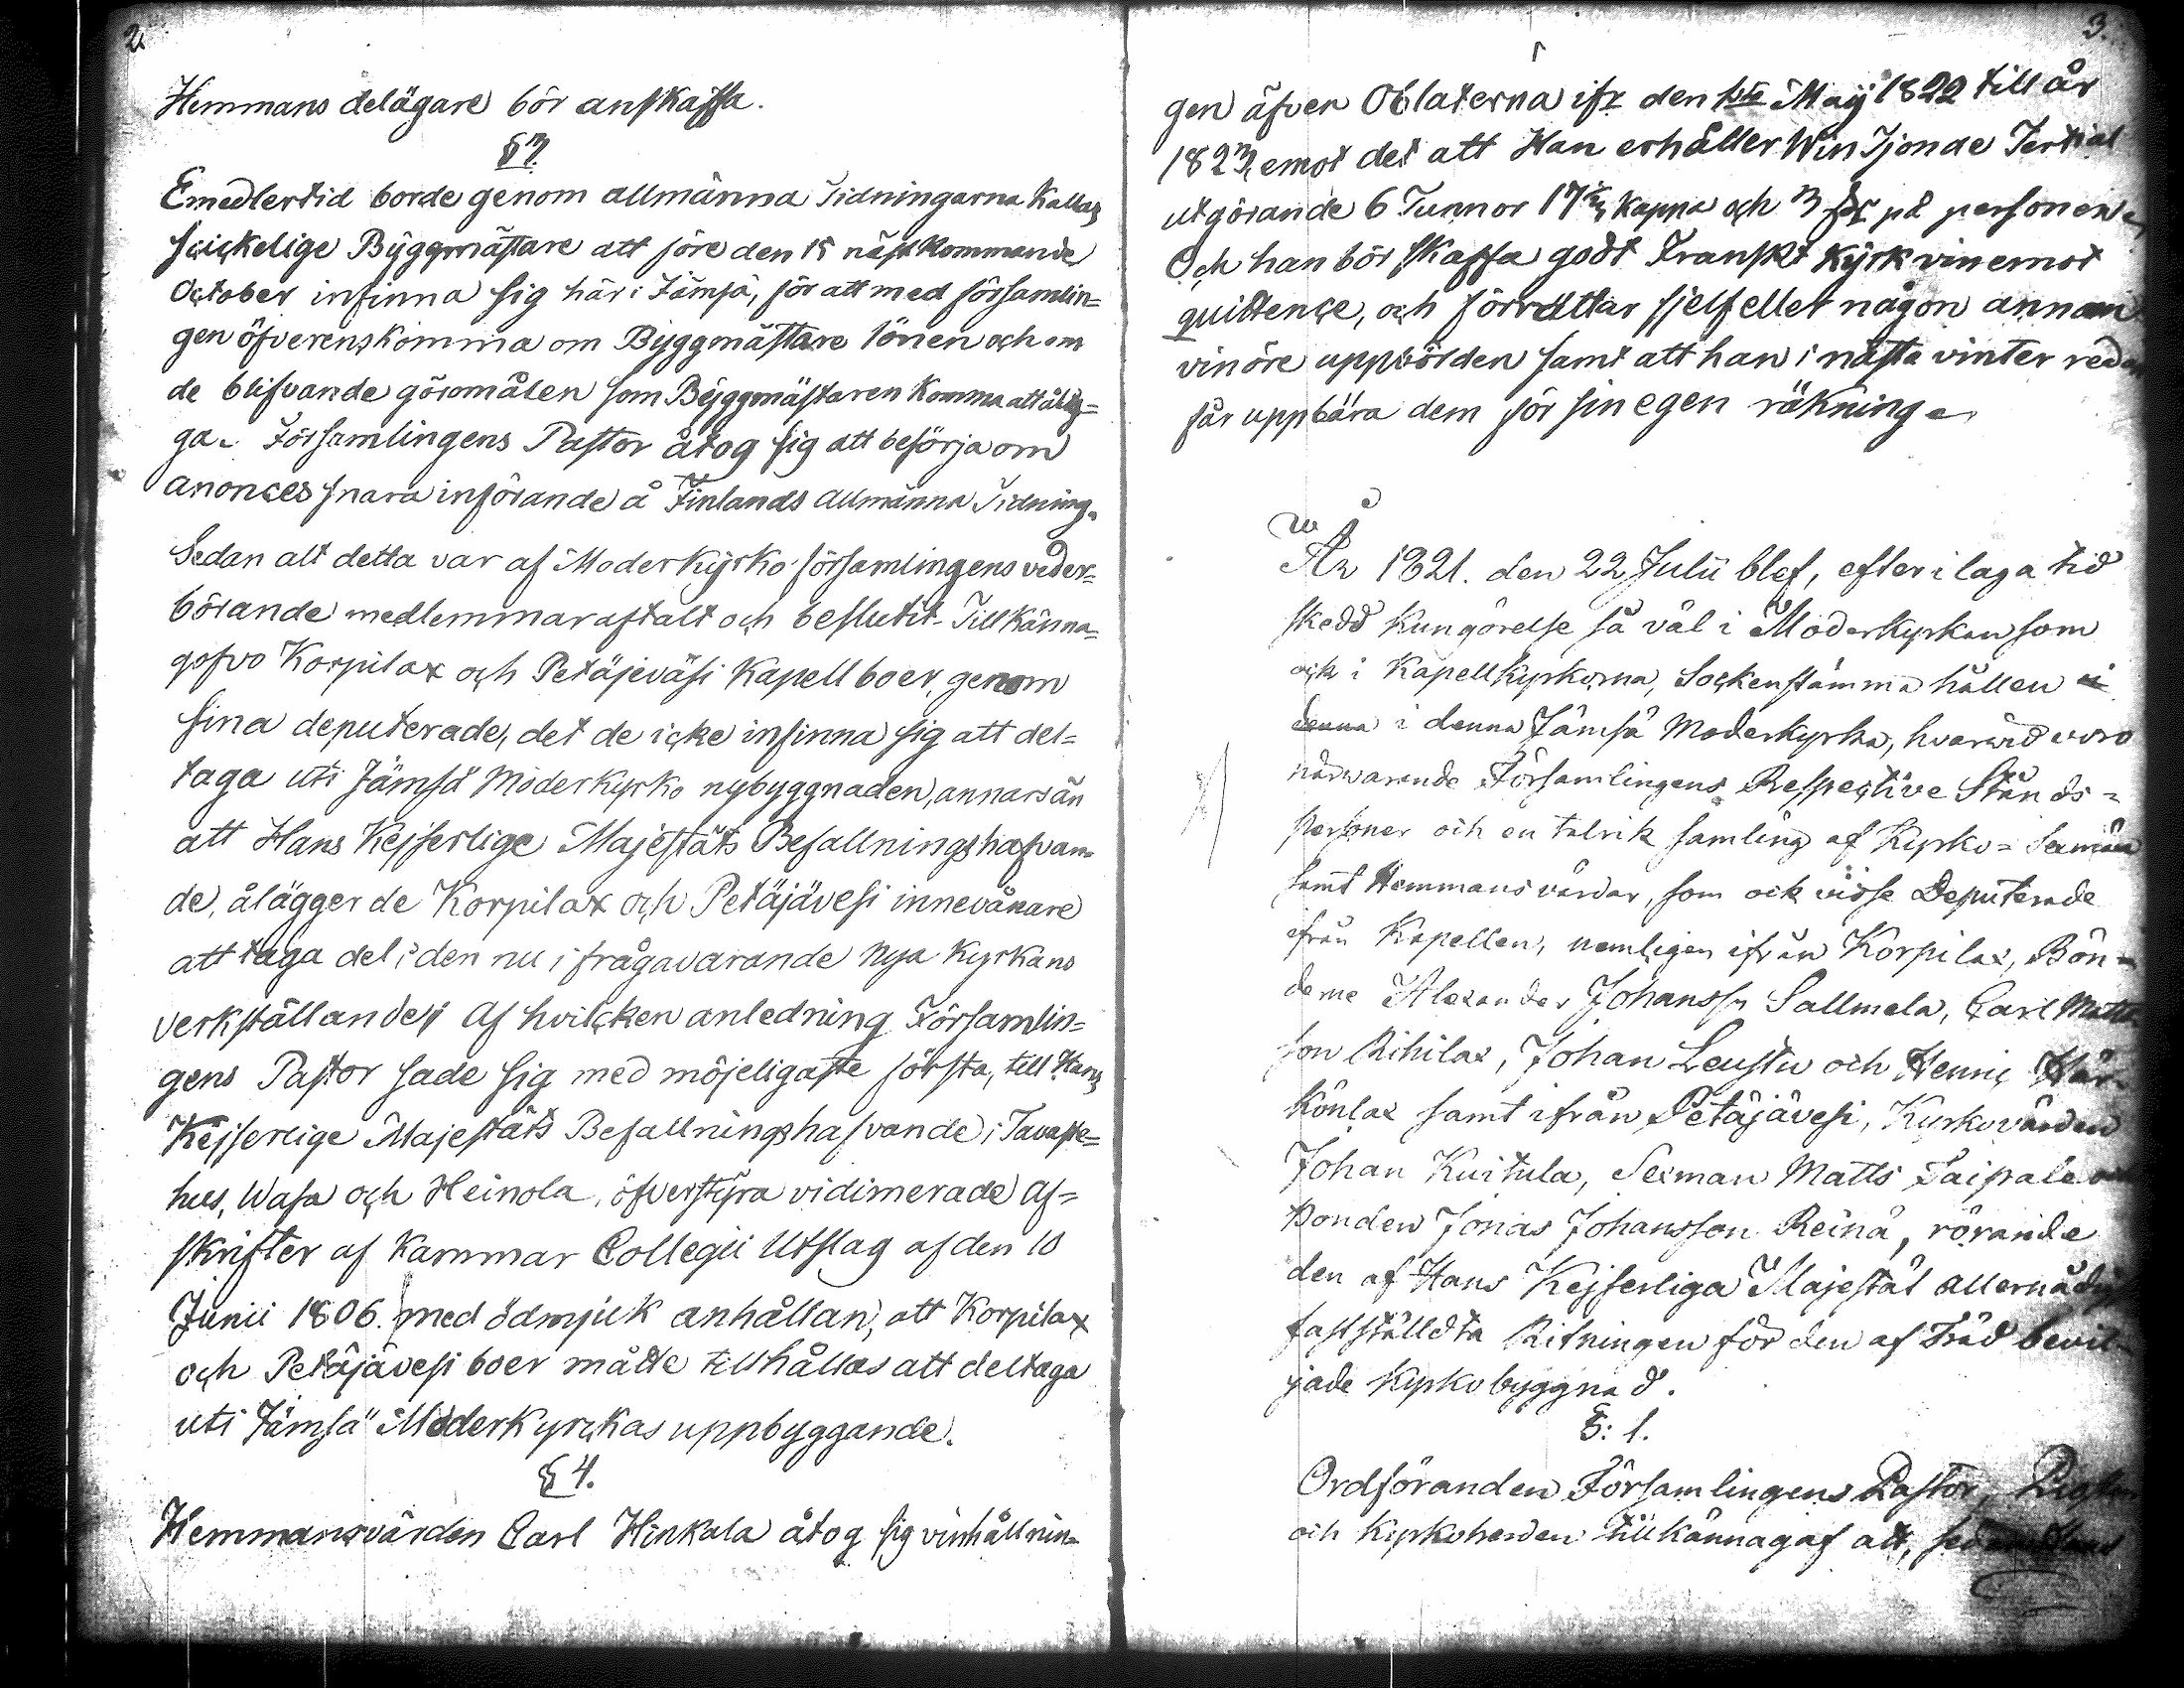 2.
Hemmans delägare bör anskaffa.
§ 3.
Emedlertid borde genom allmänna Tidningarna Kallas
skickelige Byggmästare att före den 15 näst kommande
October infinna sig här i Jämsä, för att med församlin=
gen öfverenskomma om Byggmästare lönen och om
de blifvande göromålen som Byggmästaren Komma att ålig=
ga. Församlingens Pastor åtog sig att besörja om
anonces snara införande å Finlands allmänna Tidning.
Sedan alt detta var af Moderkyrko församlingens veder=
börande medlemmar aftalt och beslutit. Till Känna=
gofvo Korpilax och Petäjeväsi Kapell boer, genom
sina deputerade, det de icke infinna sig att del=
taga uti Jämsä Moderkyrko nybyggnaden, annars än
att Hans Kejserlige Majestäts Befallningshafvan=
de, ålägger de Korpilax och Petäjävesi innevånare
att taga del i den nu i fråga varande nya Kyrkans
verkställande; af hvilcken anledning Församlin=
gens Pastor sade sig med möjeligaste första, till Hans
Kejserlige Majestäts Befallningshafvande i Tavaste=
hus, Wasa och Heinola, öfverstyra vidimerade af=
skrifter af Kammar Collegii Utslag af den 10
Junii 1806. med ödmjuk anhållan, att Korpilax
och Petäjävesi boer måtte tillhållas att deltaga
uti Jämsä Moderkyrckas uppbyggande.
§ 4.
Hemmansvärden Carl Hinkala åtog sig vinhållnin=
3.
gen äfven Oblaterna ifr den 1ste Maij 1822 till år
1823, emot det att Han erhåller Win Tjonde Tertial
utgörande 6 Tunnor 17 kappa och 3 på personen
Och han bör skaffa godt Franskt Kyrk vin emot
quittence, och förrättar sjelf eller någon annan
vinöre uppbörden samt att han i nästa vinter redan
får uppbära dem för sin egen räkning.
År 1821. den 22 Julii blef, efter i laga tid
skedd Kungörelse så väl i Moderkyrkan som
och i Kapellkyrkorna, Sockenstämma hållen i
denna i denna Jämsä Moderkyrka, hvarwid woro
närwarande Församlingens Respective Stånds=
personer och en talrik samling af Kyrko= Sexmän
samt Hemmansvärdar, som ock visse Deputerade
ifrån Kapellen, nemligen ifrån Korpilax, Bön=
derne Alexander Johansson Sallmela, Carl Matts
son Rihilax, Johan Leustu och Henric Här=
könlax samt ifrån Petäjävesi, Kyrkovärden
Johan Kuitula, Sexman Matts Taipale och
Bonden Jonas Johansson Reinä, rörande
den af Hans Kejserliga Majestät allernådigst
fastställdta Ritningen för den af Träd bevil=
jade Kyrkobyggnad.
§: 1.
Ordföranden Församlingens Pastor, Prosten
och Kyrkoherden tillkännagaf att, sedan Hans